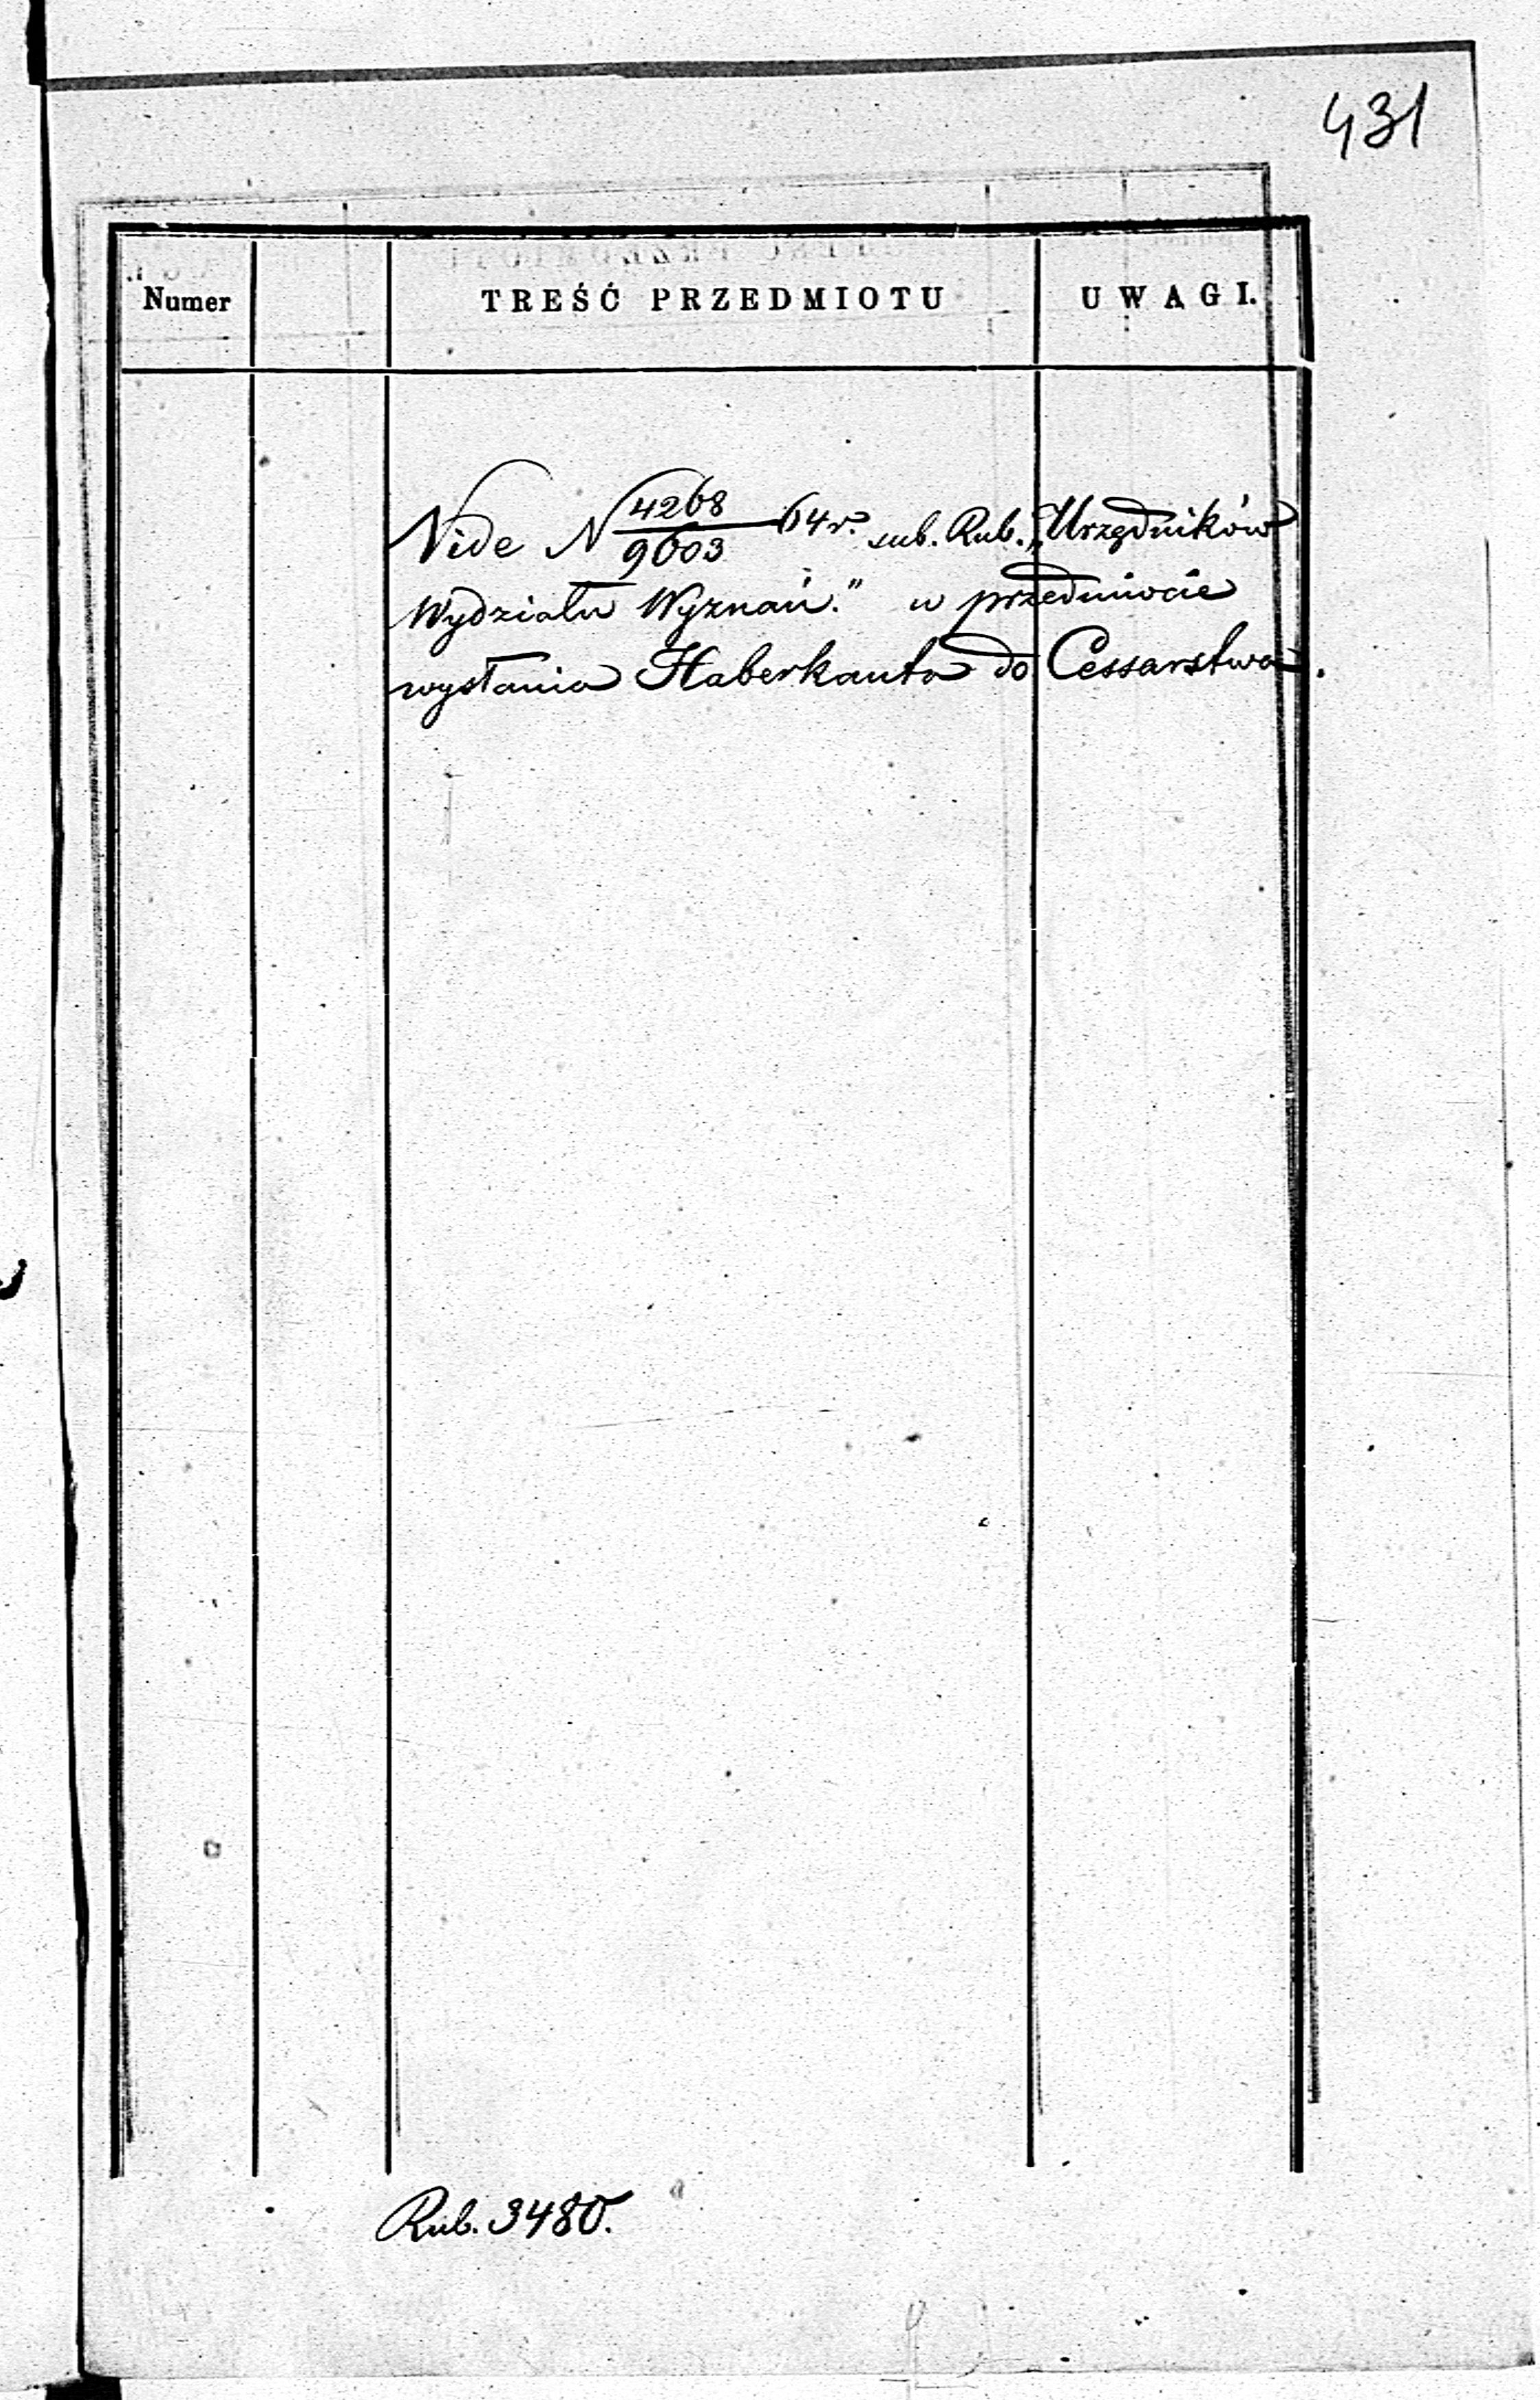 431
Numer TREŚĆ PRZEDMIOTU UWAGI.
Vide N 4268/9603 64 r. sub. Rub. „Urzędników
Wydziału Wyznań." w przedmiocie
wysłania Haberkanta do Cessarstwa.
Rub. 3480.